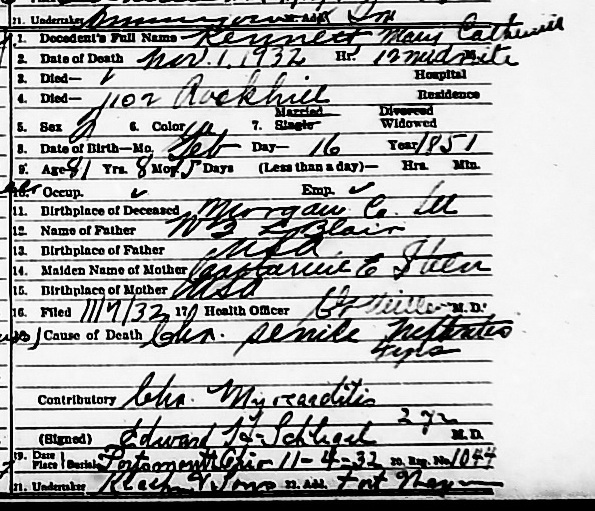 21. Undertaker 22. Add.
1. Decedent's Full Name Kennett Mary Catherine
2. Date of Death Nov. 1, 1932 Hr. 12 midnite M.
3. Died— Hospital
4. Died— 1102 Rockhill Residence
Married Divorced
5. Sex F 6. Color W 7. Single Widowed
8. Date of Birth—Mo. Feb Day— 16 Year 1851
9. Age 81 Yrs. 8 Mos. 5 Days (Less than a day)— Hrs. Min.
10. Occup. ✓ Emp. ✓
11. Birthplace of Deceased Morgan Co. Ill
12. Name of Father Blair
13. Birthplace of Father USA
14. Maiden Name of Mother Catharine E
15. Birthplace of Mother USA
16. Filed 11/7/32 17. Health Officer M. D.
Cause of Death Chr. senile Nephritis
4 yrs
Contributory Chr. Myocarditis
2 yr
(Signed) Edward H. M. D.
19. Date Place Burial Portsmouth Ohio 11-4-32 20. Reg. No. 1044
21. Undertaker & Sons 22. Add. Fort Wayne